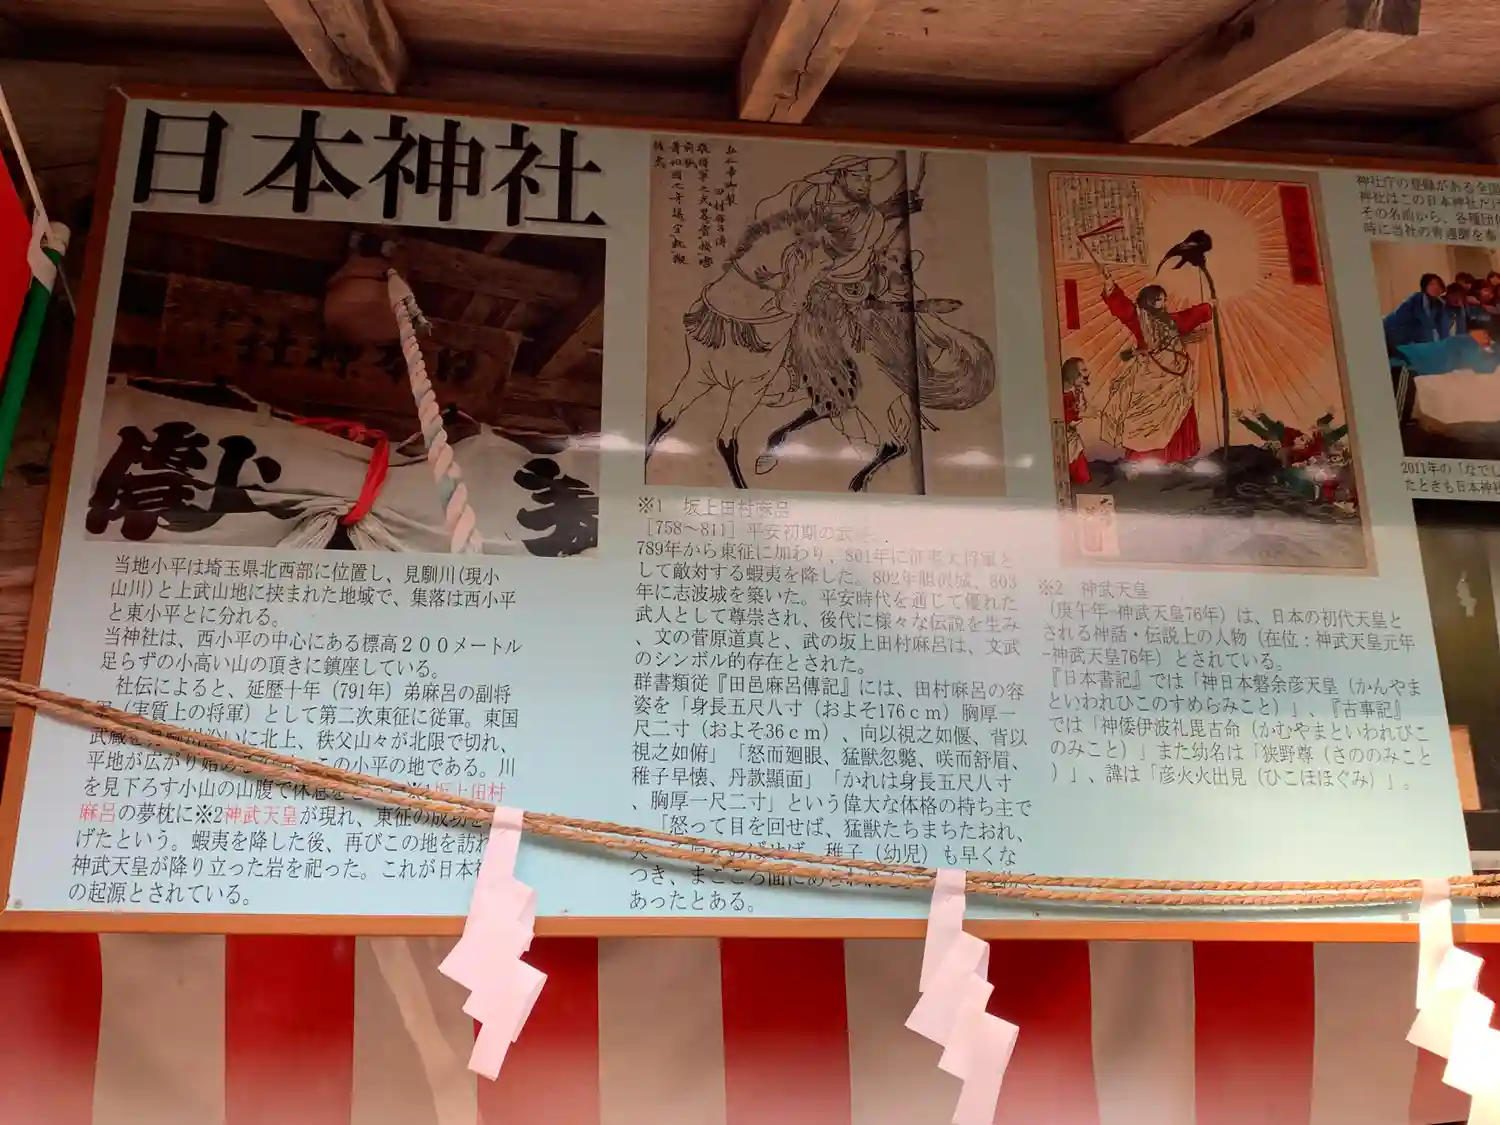 日本神社
献
当地小平は埼玉県北西部に位置し、見馴川(現小
山川)と上武山地に挟まれた地域で、集落は西小平
と東小平とに分れる。
当神社は、西小平の中心にある標高200メートル
足らずの小高い山の頂きに鎮座している。
社伝によると、延暦十年（791年）弟麻呂の副将
（実質上の将軍）として第二次東征に従軍。東国
武蔵を見馴川沿いに北上、秩父山々が北限で切れ、
平地が広がり始め この小平の地である。川
を見下ろす小山の山腹で休息を ※1坂上田村
麻呂の夢枕に※2神武天皇が現れ、東征の成功を
げたという。蝦夷を降した後、再びこの地を訪れ
神武天皇が降り立った岩を祀った。これが日本神
の起源とされている。
※1　坂上田村麻呂
［758〜811］平安初期の武
789年から東征に加わり、801年に征夷大将軍と
して敵対する蝦夷を降した。802年胆沢城、803
年に志波城を築いた。平安時代を通じて優れた
武人として尊崇され、後代に様々な伝説を生み
、文の菅原道真と、武の坂上田村麻呂は、文武
のシンボル的存在とされた。
群書類従『田邑麻呂傳記』には、田村麻呂の容
姿を「身長五尺八寸（およそ176ｃｍ）胸厚一
尺二寸（およそ36ｃｍ）、向以視之如偃、背以
視之如俯」「怒而廻眼、猛獣忽斃、咲而舒眉、
稚子早懐、丹款顯面」「かれは身長五尺八寸
、胸厚一尺二寸」という偉大な体格の持ち主で
「怒って目を回せば、猛獣たちまちたおれ、
稚子（幼児）も早くな
つき、まごころ面に
あったとある。
※2　神武天皇
（庚午年-神武天皇76年）は、日本の初代天皇と
される神話・伝説上の人物（在位：神武天皇元年
-神武天皇76年）とされている。
『日本書記』では「神日本磐余彦天皇（かんやま
といわれひこのすめらみこと）」、『古事記』
では「神倭伊波礼毘古命（かむやまといわれびこ
のみこと）」また幼名は「狭野尊（さののみこと
）」、諱は「彦火火出見（ひこほほぐみ）」。
神社庁の登録がある全国
神社はこの日本神社だけ
その名前から、各種団体
時に当社の青道師を奉
2011年の「なでし
たときも日本神社